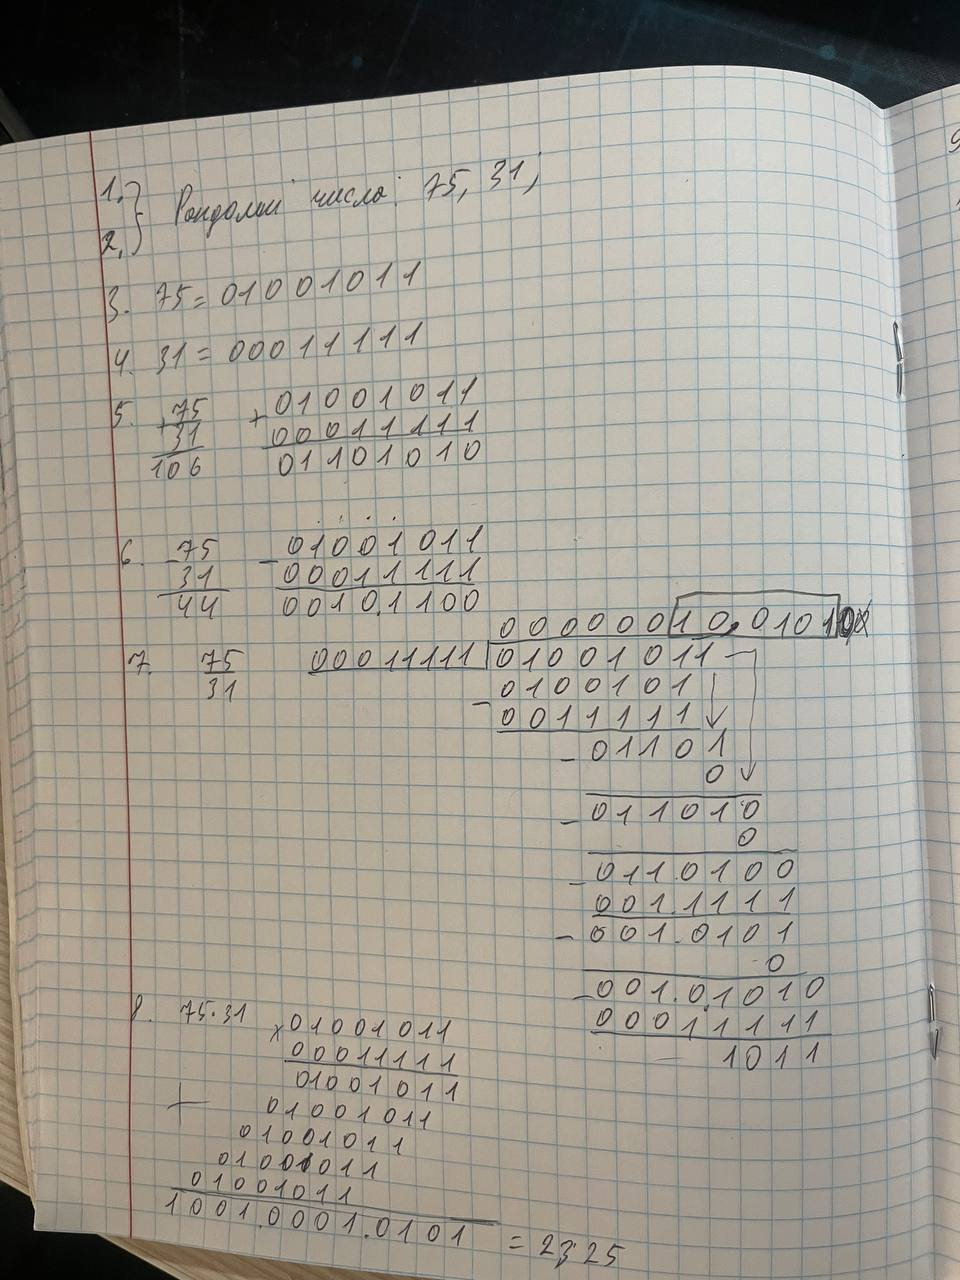 1. }
2. } Рандомні числа: 75, 31;
3. 75 = 01001011
4. 31 = 00011111
5. +75 + 01001011
31 00011111
106 01101010
6. -75 - 01001011
31 00011111
44 0010.1100
00000010,0101
7. 75 00011111 01001011
31 0100101
- 0011111
- 01101
0
- 011010
0
- 0110100
001.1111
- 001.0101
0
- 001.01010
00011111
1011
8. 75·31 x 01001011
00011111
01001011
+ 01001011
01001011
01001011
01001011
1001.0001.0101 = 2325